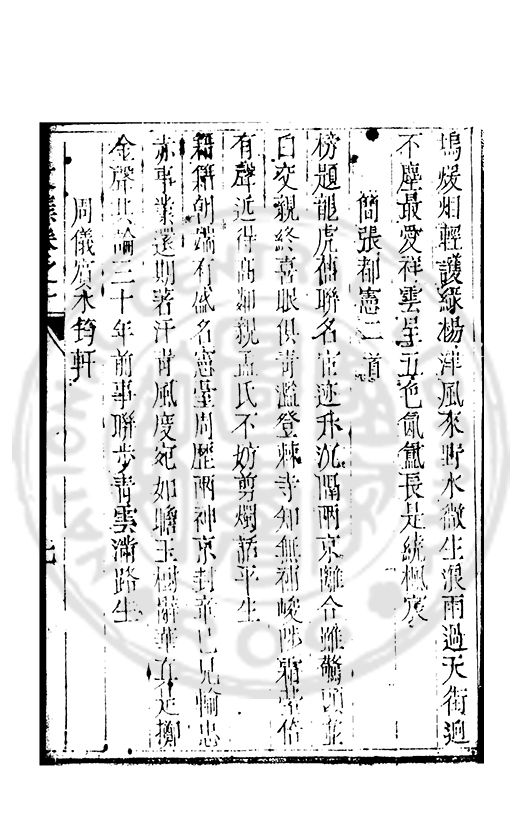 塢煖烟輕護綠楊洋風來野水微生浪雨過天街迥
不塵最愛祥雲呈五色氤氳長是繞楓宸
簡張都憲二首
榜題龍虎舊聯名宦迹升沉隔兩京離合雖驚頭並
白交親終喜眼俱青濫登棘寺知無補峻陟霜臺倍
有聲近得髙鄰親孟氏不妨剪燭話平生
籍籍朝端有盛名憲臺周歷兩神京封章已見輸忠
赤事業還期著汗青風度宛如瞻玉樹辭華真足擲
金聲共論三十年前事聯步青雲滿路生
周儀賓水筠軒
集卷之十